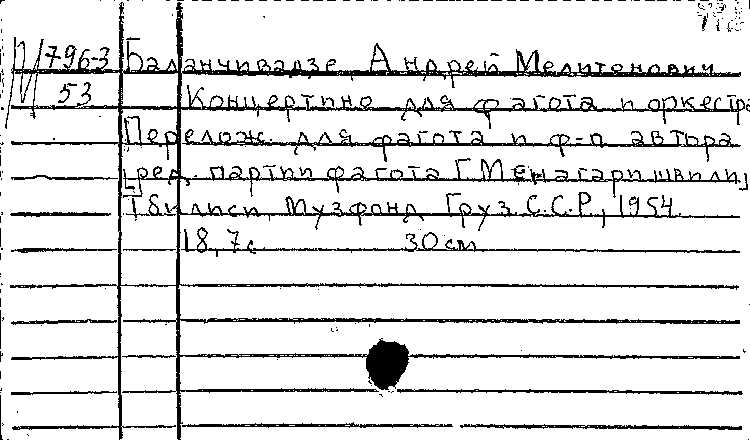 796-3 Баланчивадзе, Андрей Мелитонович
53 Концертино для фагота и оркестра
Перелож. для фагота и ф-п автора
[ред. партии фагота Г. Менагаришвили]
Тбилиси, Музфонд Груз. С.С.Р., 1954.
18, 7 с 30 см